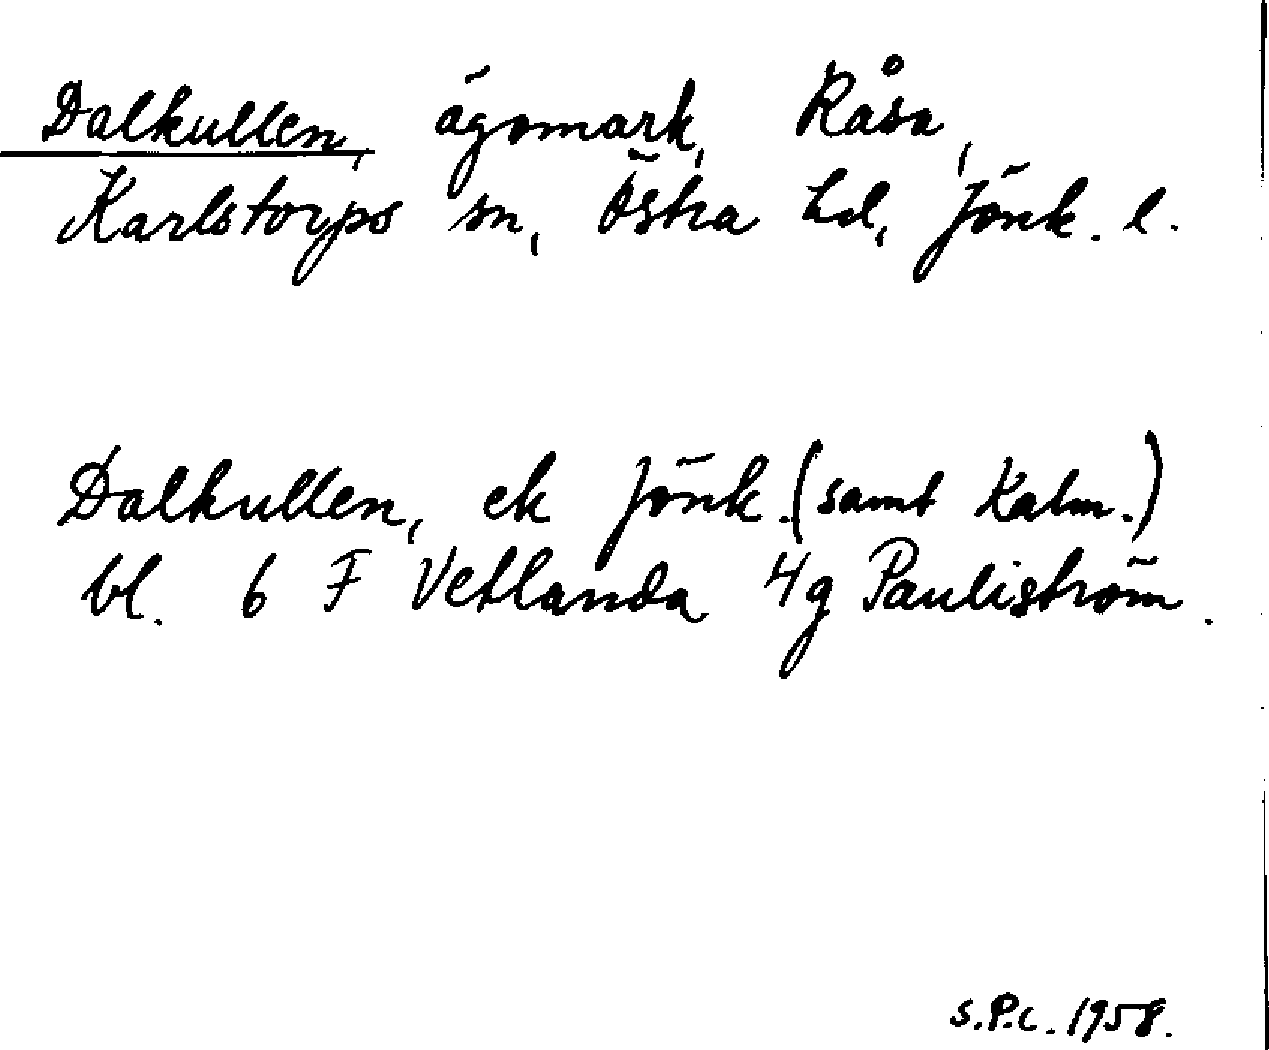 Dalkullen, ägomark, Råsa,
Karlstorps sn, Östra hd, Jönk. l.
Dalkullen, ek Jönk. (samt Kalm.)
bl. 6 F Vetlanda 4g Pauliström.
S.P.C. 1958.